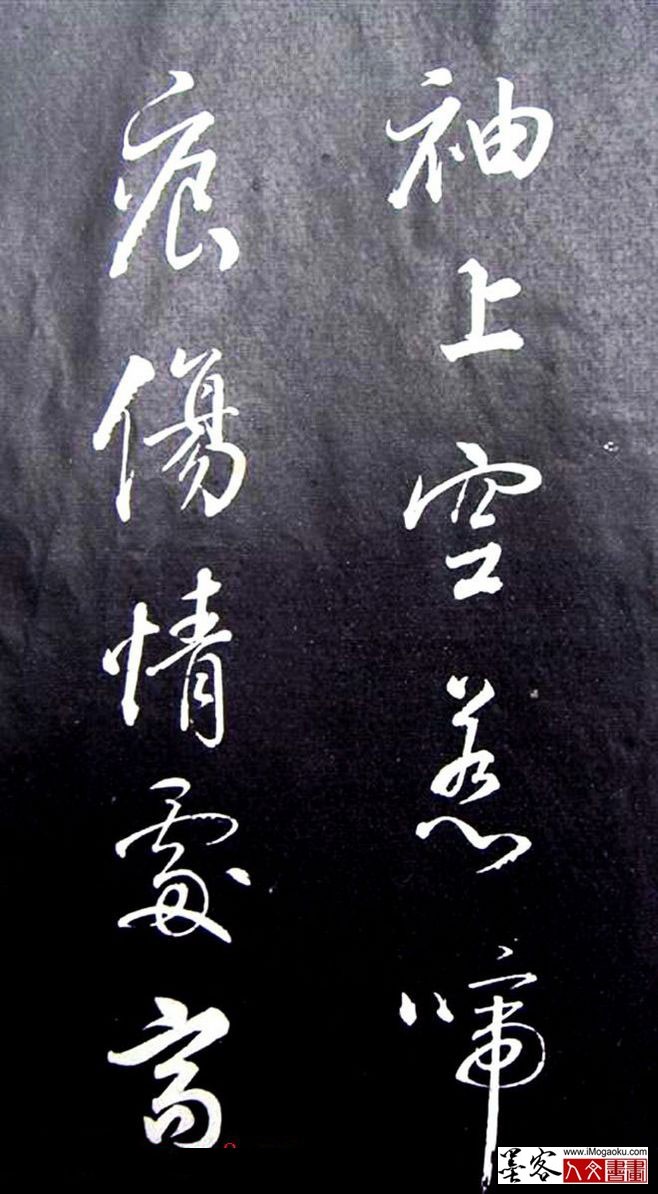 袖上空惹啼
痕傷情處高
墨客
www.iMogaoku.com
人文書畫